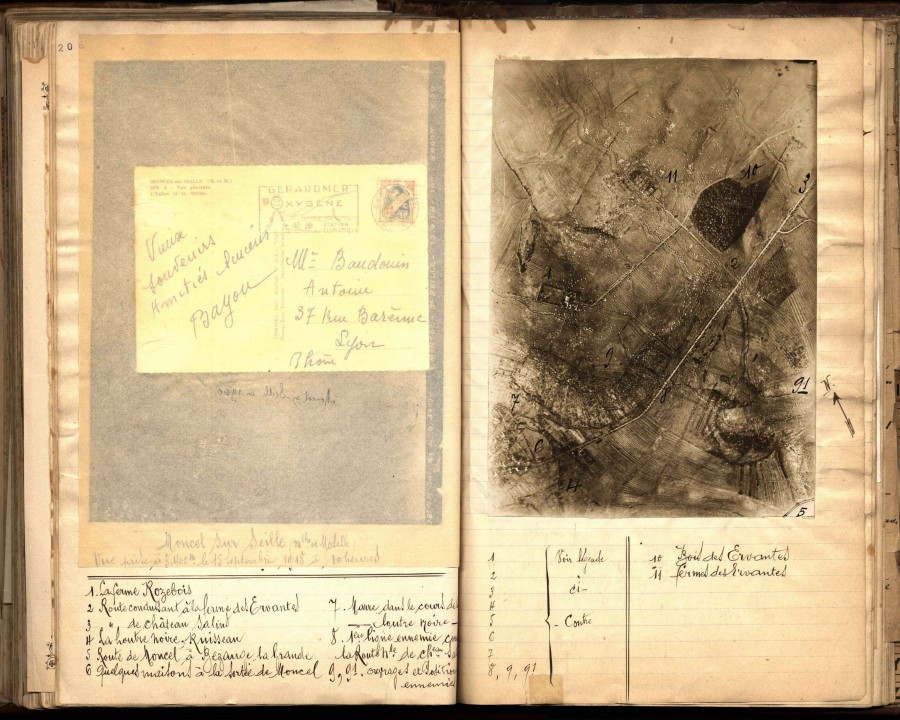 20
GERARDMER
OXYGÈNE
STATION
CLIMATIQUE
Vieux
souvenirs
Amitiés
Bayon
Mr Baudouin
Antoine
37 Rue Barème
Lyon
Rhône
Moncel sur Seille
Vue prise à le 15 septembre 1918 à 10 heures
1. La ferme Rozebois
2 Route conduisant à la ferme des Ervantes
3 " de château Salins
4 La loutre noire. Ruisseau
5 Route de Moncel à Bézange la Grande
6 Quelques maisons à la sortie de Moncel
7. Marre dans le cours de
loutre noire
8. 1ère ligne ennemie
la Route Nle de
9, 91. ouvrages et
ennemies
11
10
3
2
1
9
8
91
7
6
4
5
N
1
2
3
4
5
6
7
8, 9, 91
Voir légende
ci-
- Contre
10 Bois des Ervantes
11 fermes des Ervantes